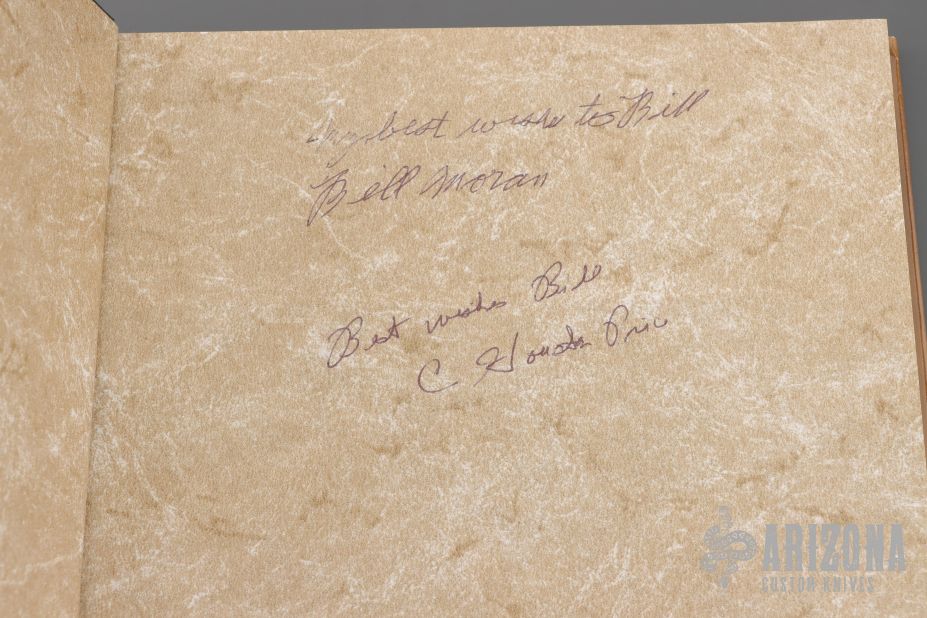 My best wishes to Bill
Bill Moran
Best wishes Bill
C Houston Price
ARIZONA
CUSTOM KNIVES